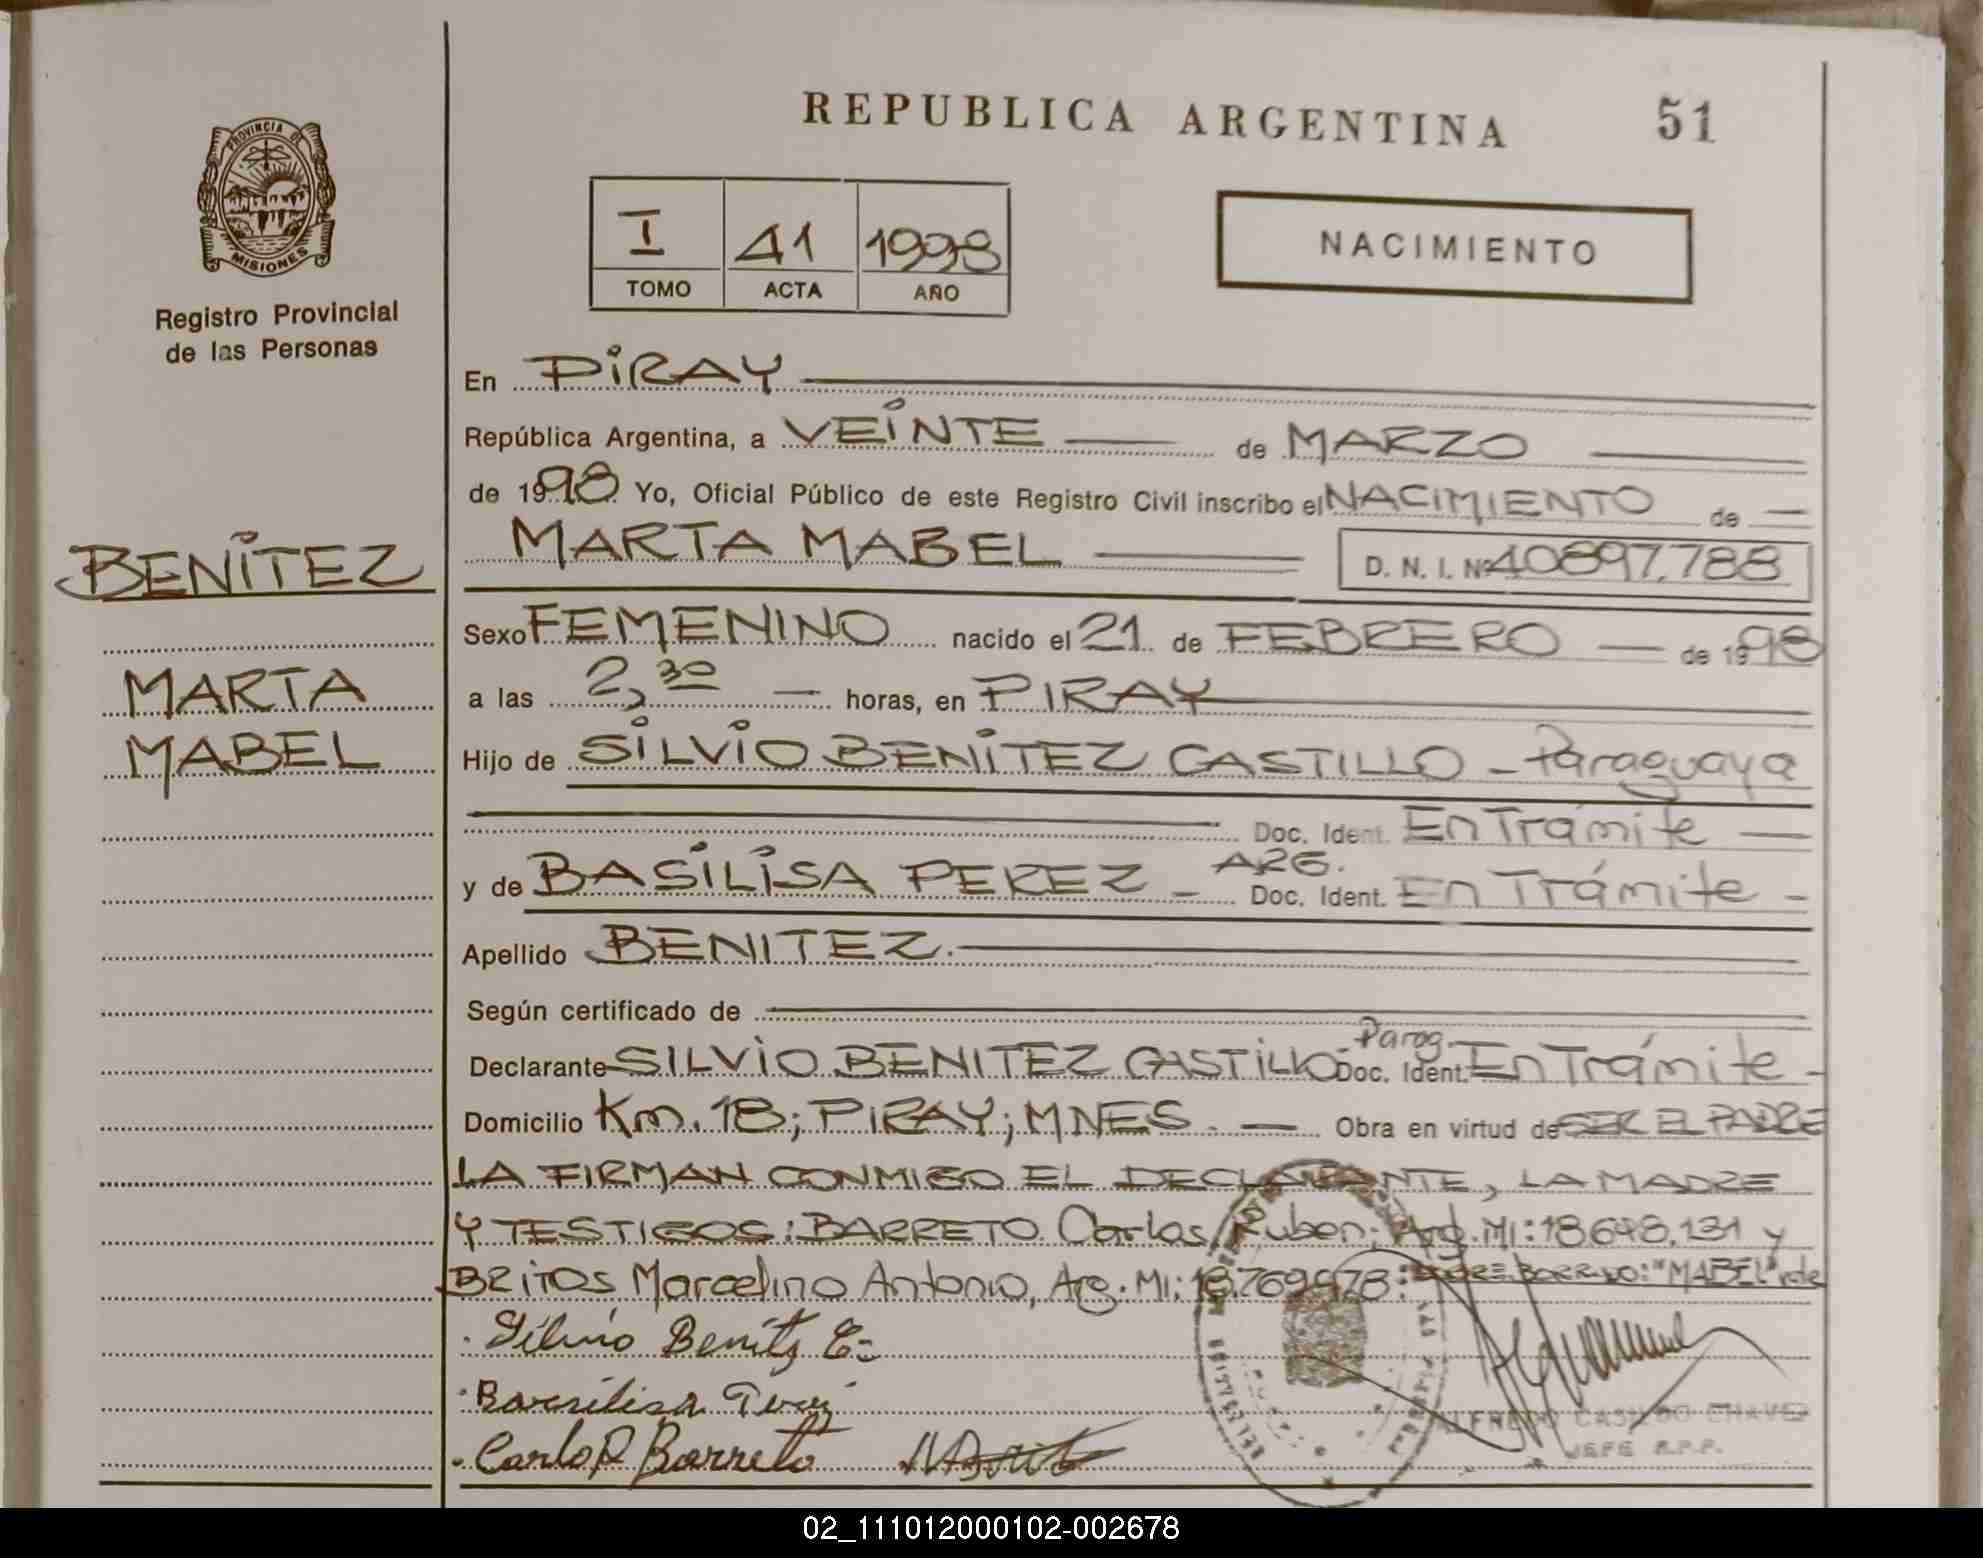 REPUBLICA ARGENTINA 51
PROVINCIA DE MISIONES
Registro Provincial
de las Personas
I 41 1998
TOMO ACTA AÑO
NACIMIENTO
En PIRAY
República Argentina, a VEINTE de MARZO
de 1998 Yo, Oficial Público de este Registro Civil inscribo el NACIMIENTO de
MARTA MABEL D. N. I. Nº 40897.788
BENITEZ
MARTA
MABEL
Sexo FEMENINO nacido el 21 de FEBRERO de 1998
a las 2,30 horas, en PIRAY
Hijo de SILVIO BENITEZ CASTILLO - Paraguaya
Doc. Ident. En Trámite
y de BASILISA PEREZ - ARG. Doc. Ident. En Trámite -
Apellido BENITEZ.
Según certificado de
Declarante SILVIO BENITEZ CASTILLO Parag. Doc. Ident. En Trámite -
Domicilio Km. 18; PIRAY; MNES. Obra en virtud de SER EL PADRE
LA FIRMAN CONMIGO EL DECLARANTE, LA MADRE
Y TESTIGOS: BARRETO Carlos Ruben; Arg. MI: 18648.131 y
BRITOS Marcelino Antonio, Arg. MI: BORRADO: "MABEL" vale
Silvio Benitz C
Barsilisa
Carlo R Barreto
ALFREDO CASILDO CHAVEZ
JEFE R.P.P.
02_111012000102-002678